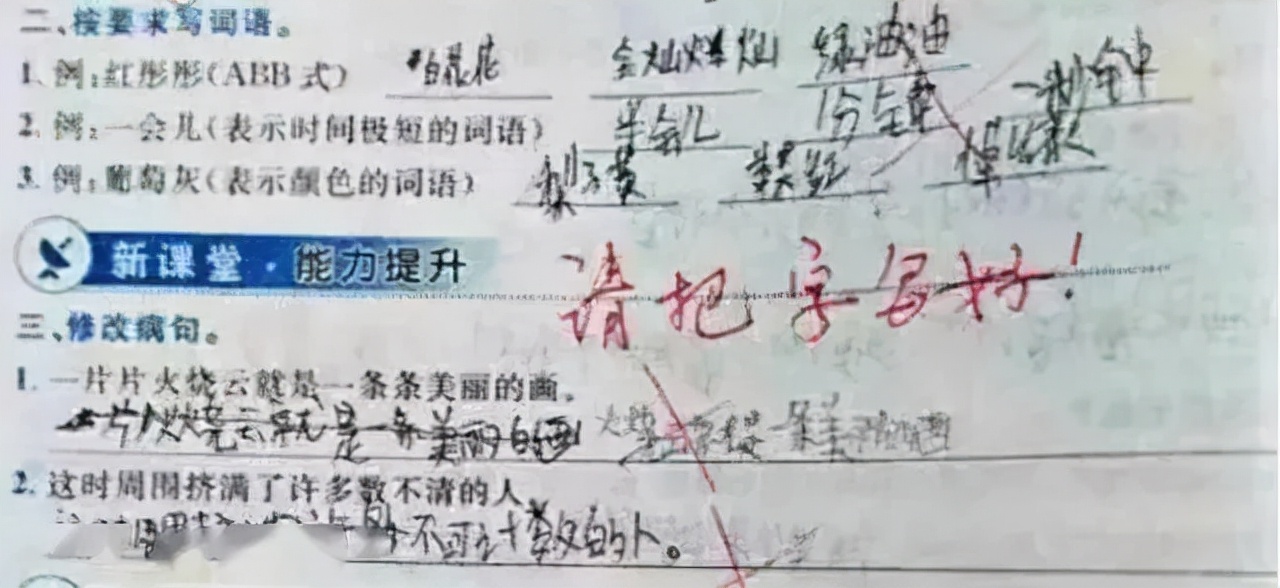 二、按要求写词语。
1. 例：红彤彤（ABB式） 白花花 金灿灿 绿油油
2. 例：一会儿（表示时间极短的词语） 半会儿 1分钟 一秒钟
3. 例：葡萄灰（表示颜色的词语） 梨子黄
新课堂·能力提升
请把字写好！
三、修改病句。
1. 一片片火烧云就是一条条美丽的画。
一片火烧云就是一条美丽的画
2. 这时周围挤满了许多数不清的人
不可计数的人。